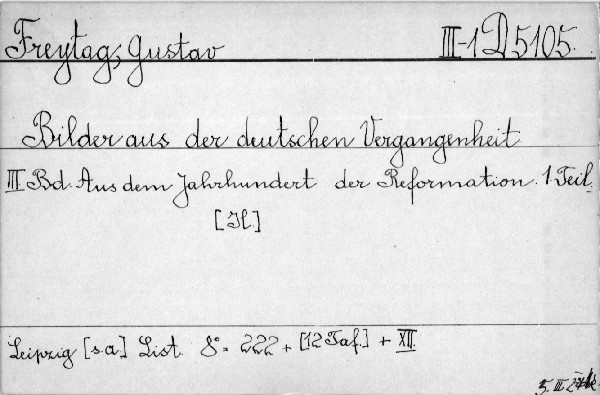 Freytag, Gustav III-1 D 5105.
Bilder aus der deutschen Vergangenheit
III Bd. Aus dem Jahrhundert der Reformation. 1. Teil.
[Il.]
Leipzig [s.a.] List. 8°= 222 + [12 Taf.] + XII
5. III.